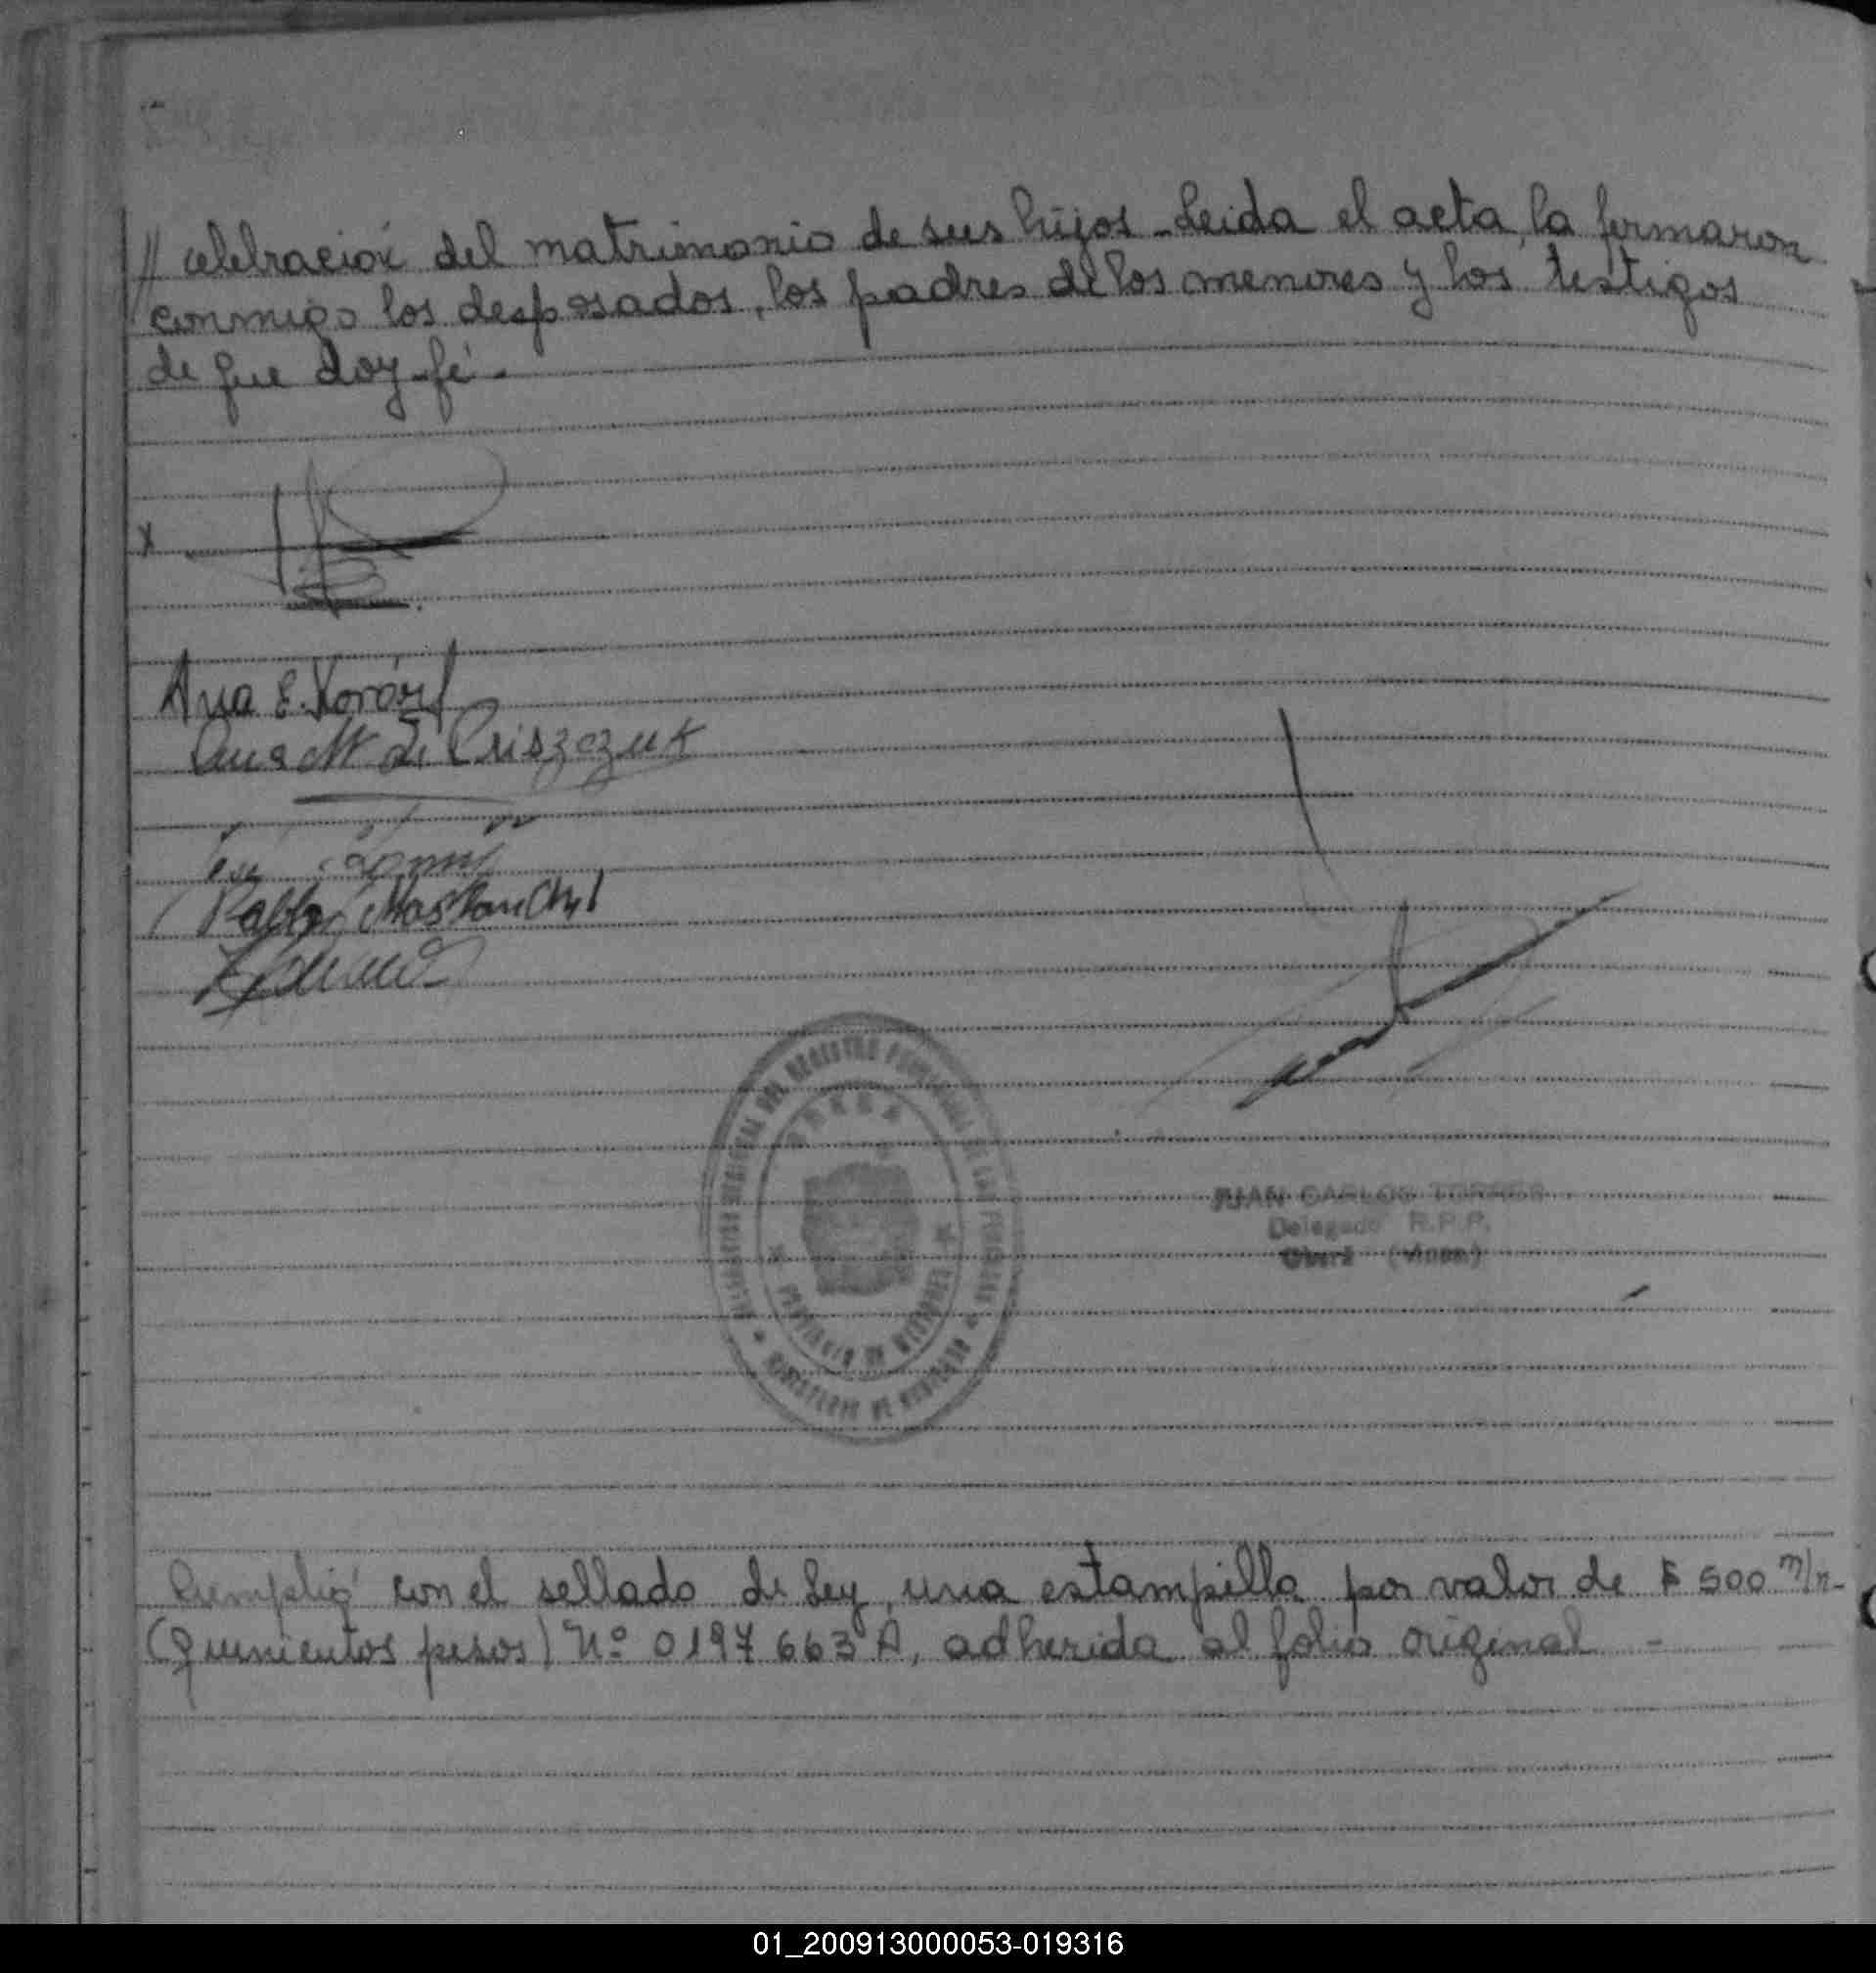 // celebracion del matrimonio de sus hijos - Leida el acta, la firmaron
conmigo los desposados, los padres de los menores y los testigos
de que doy fé.
x
Ana E.
Ana M. de Priszczuk
Pablo
REGISTRO PROVINCIAL DE LAS PERSONAS
OBERA
PROVINCIA DE MISIONES
MINISTERIO DE GOBIERNO
JUAN CARLOS TORRES
Delegado R.P.P.
Oberá (Mnes)
Cumplió con el sellado de Ley, una estampilla por valor de $ 500 m/n-
(quinientos pesos) Nº 0197663 A, adherida al folio original -
01_200913000053-019316